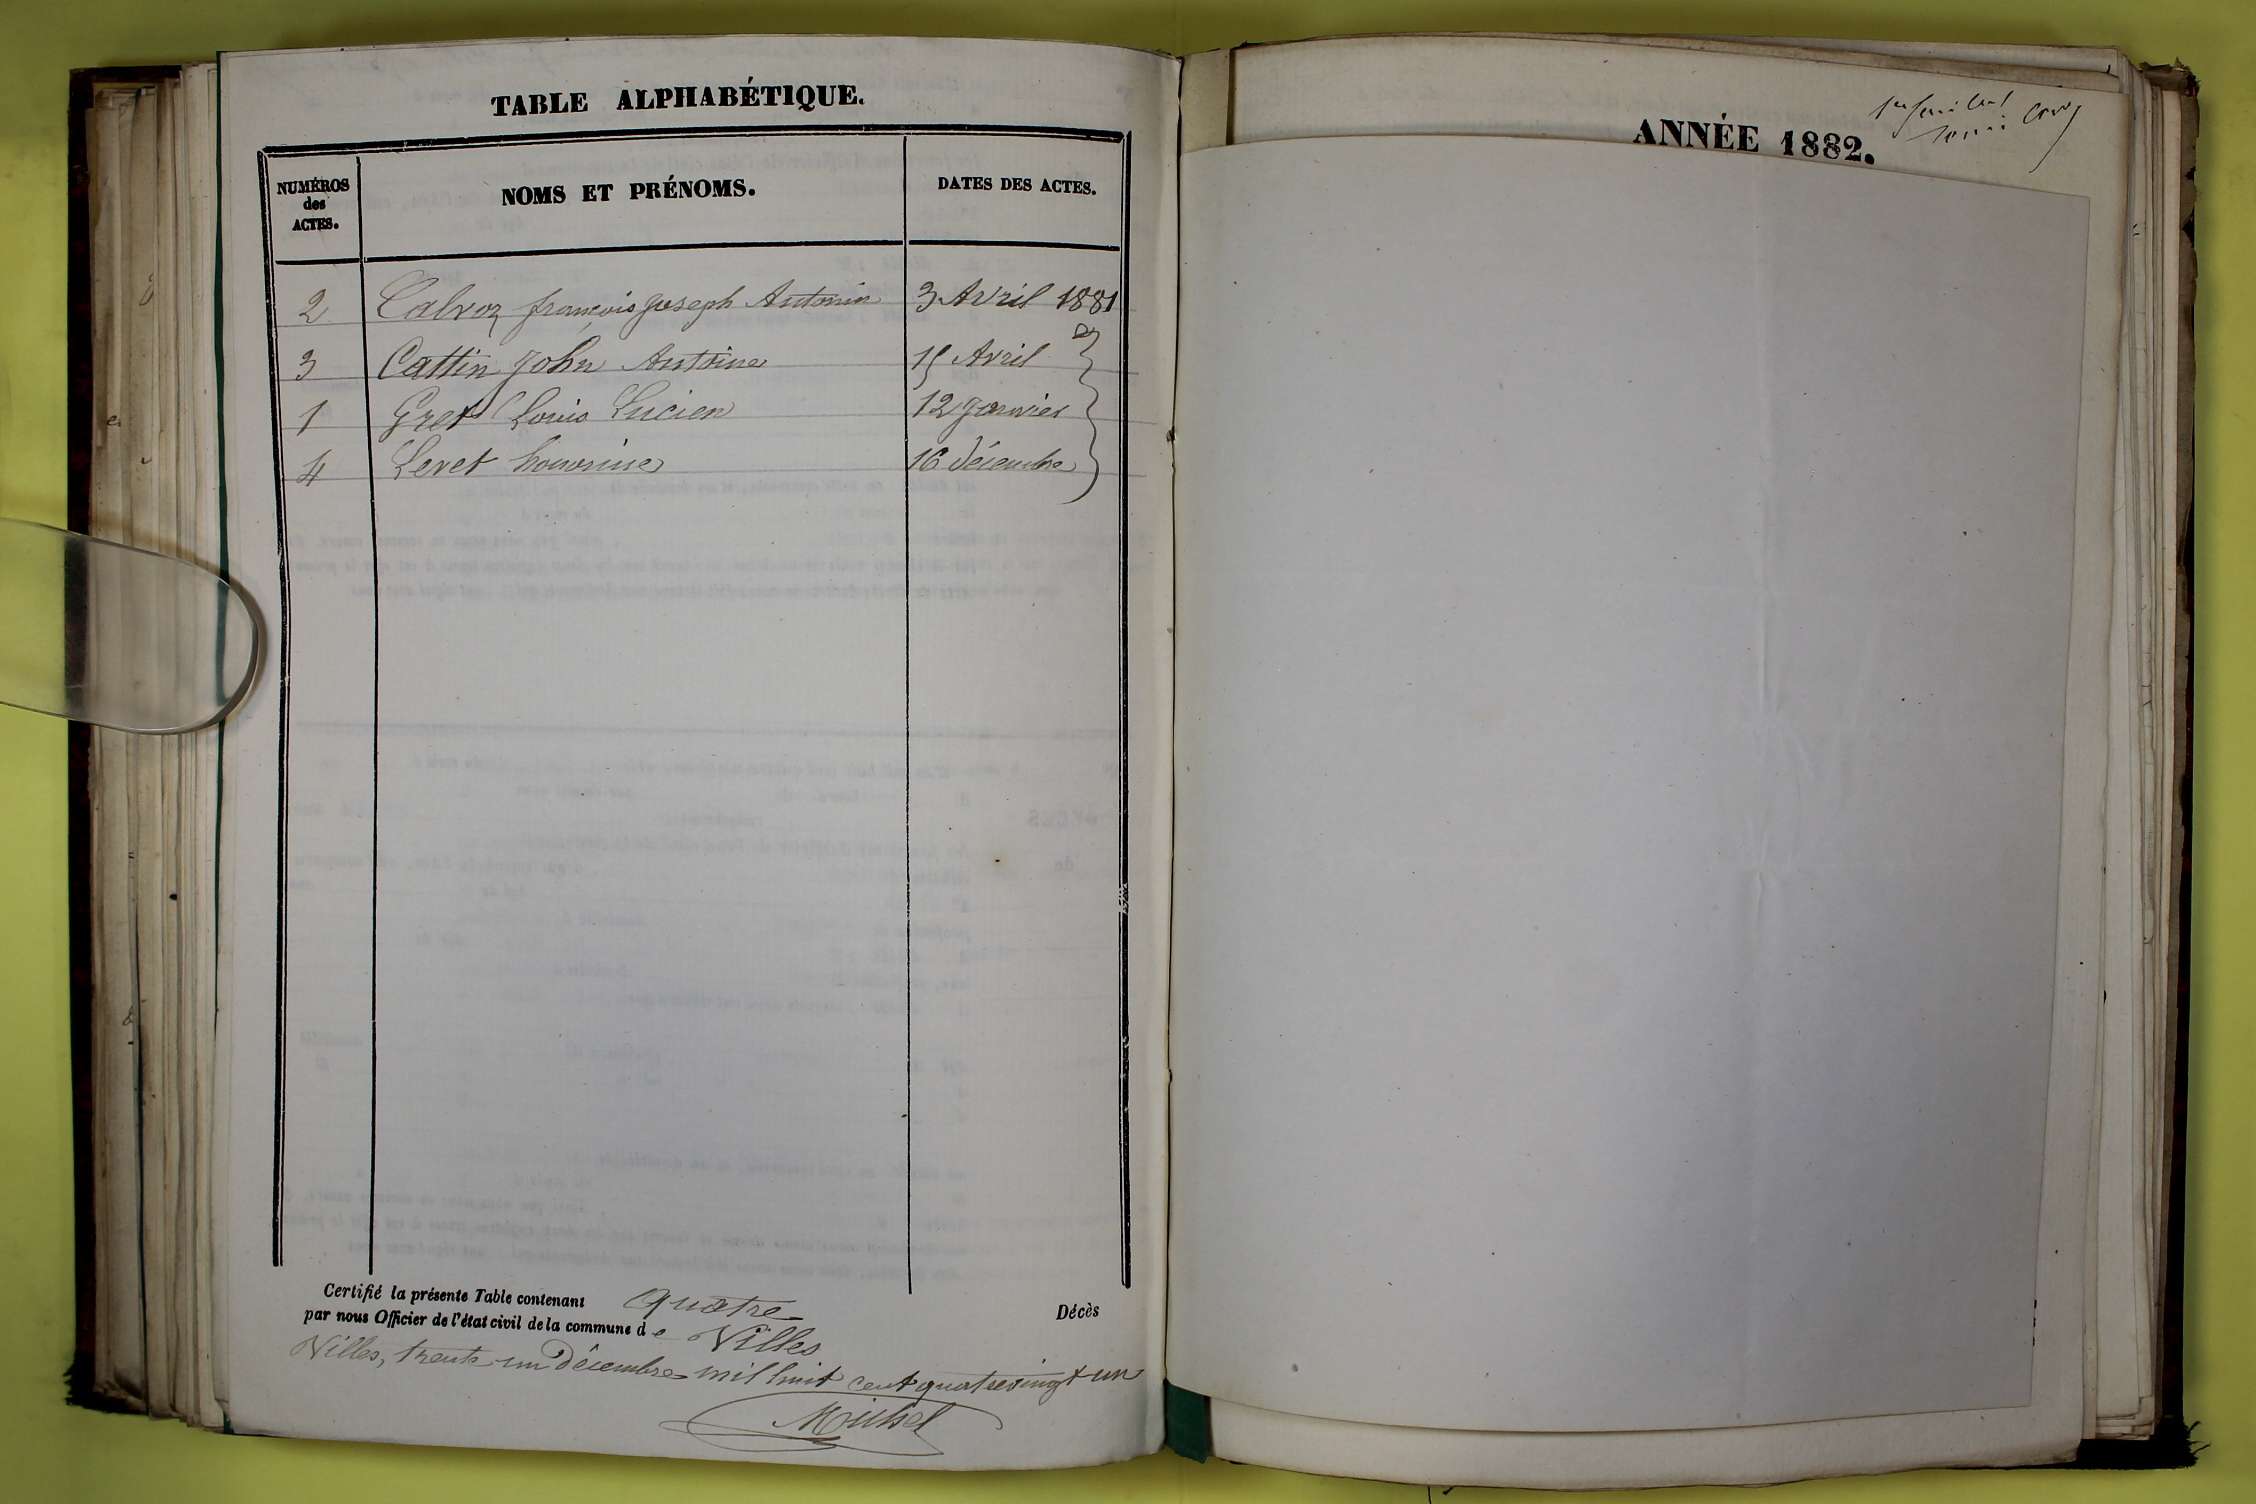 TABLE ALPHABÉTIQUE.
NUMÉROS
des
ACTES.
NOMS ET PRÉNOMS.
DATES DES ACTES.
2 Calvoz françois Joseph Antonin 3 Avril 1881
3 Cattin John Antoine 15 Avril
1 Gret Louis Lucien 12 Janvier
4 Levet honorine 16 décembre
Certifié la présente Table contenant quatre Décès
par nous Officier de l'état civil de la commune de Villes
Villes, trente un Décembre mil huit cent quatrevingt un
Michel
ANNÉE 1882.